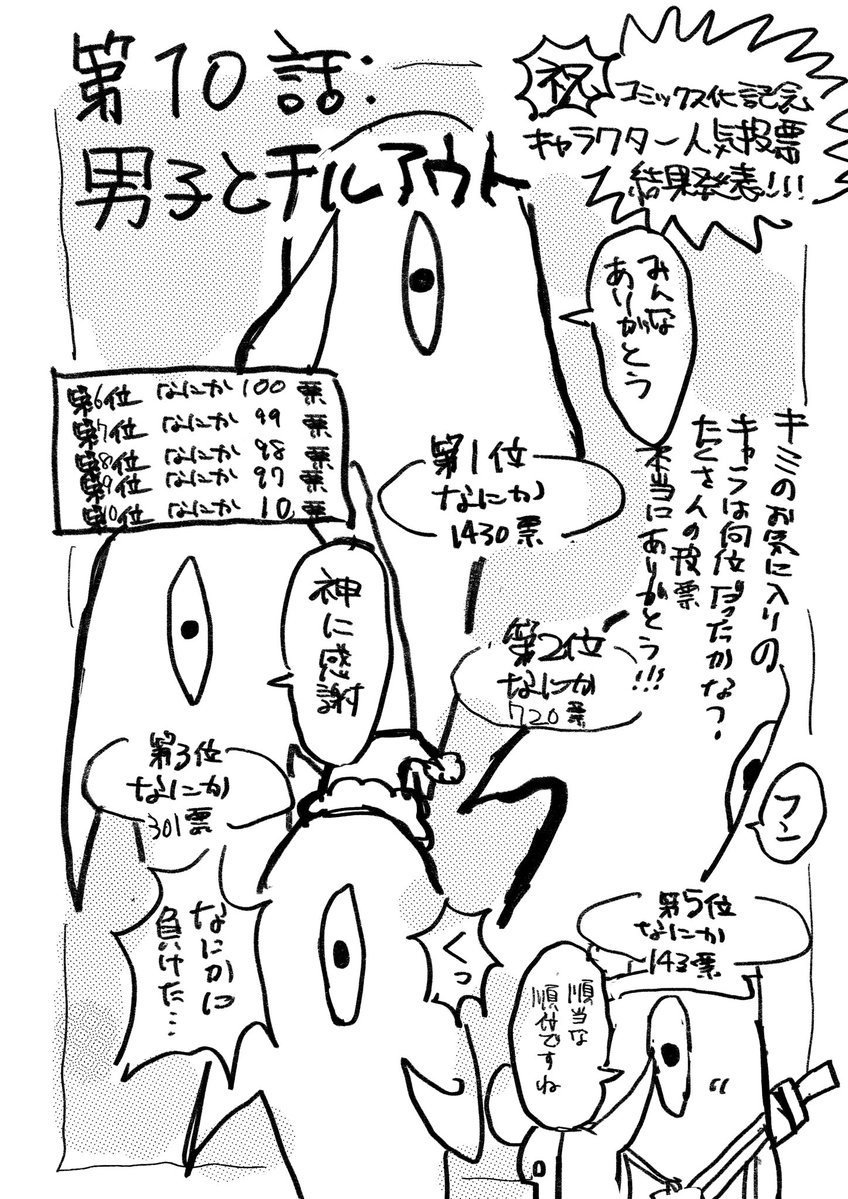 第10話:
男子とチルアウト
祝
コミックス化記念
キャラクター人気投票
結果発表!!!
みんな
ありがとう
キミのお気に入りの
キャラは何位だったかな?
たくさんの投票
本当にありがとう!!!
第1位
なにか
1430票
第6位 なにか 100 票
第7位 なにか 99 票
第8位 なにか 98 票
第9位 なにか 97 票
第10位 なにか 10 票
神に感謝
第2位
なにか
720票
第3位
なにか
301票
フン
第5位
なにか
143票
くっ
なにかに
負けた…
順当な
順付ですね